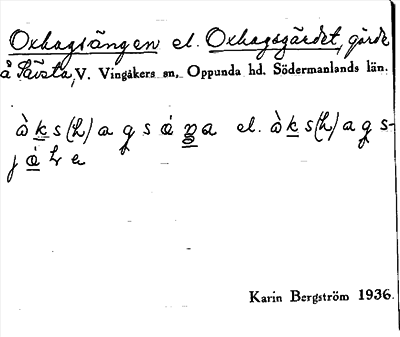 Oxhagsängen el. Oxhagsgärdet, gärde
å Sävsta, V. Vingåkers sn, Oppunda hd. Södermanlands län.
àks(h)agsáŋa el. àks(h)ags-
Karin Bergström 1936.